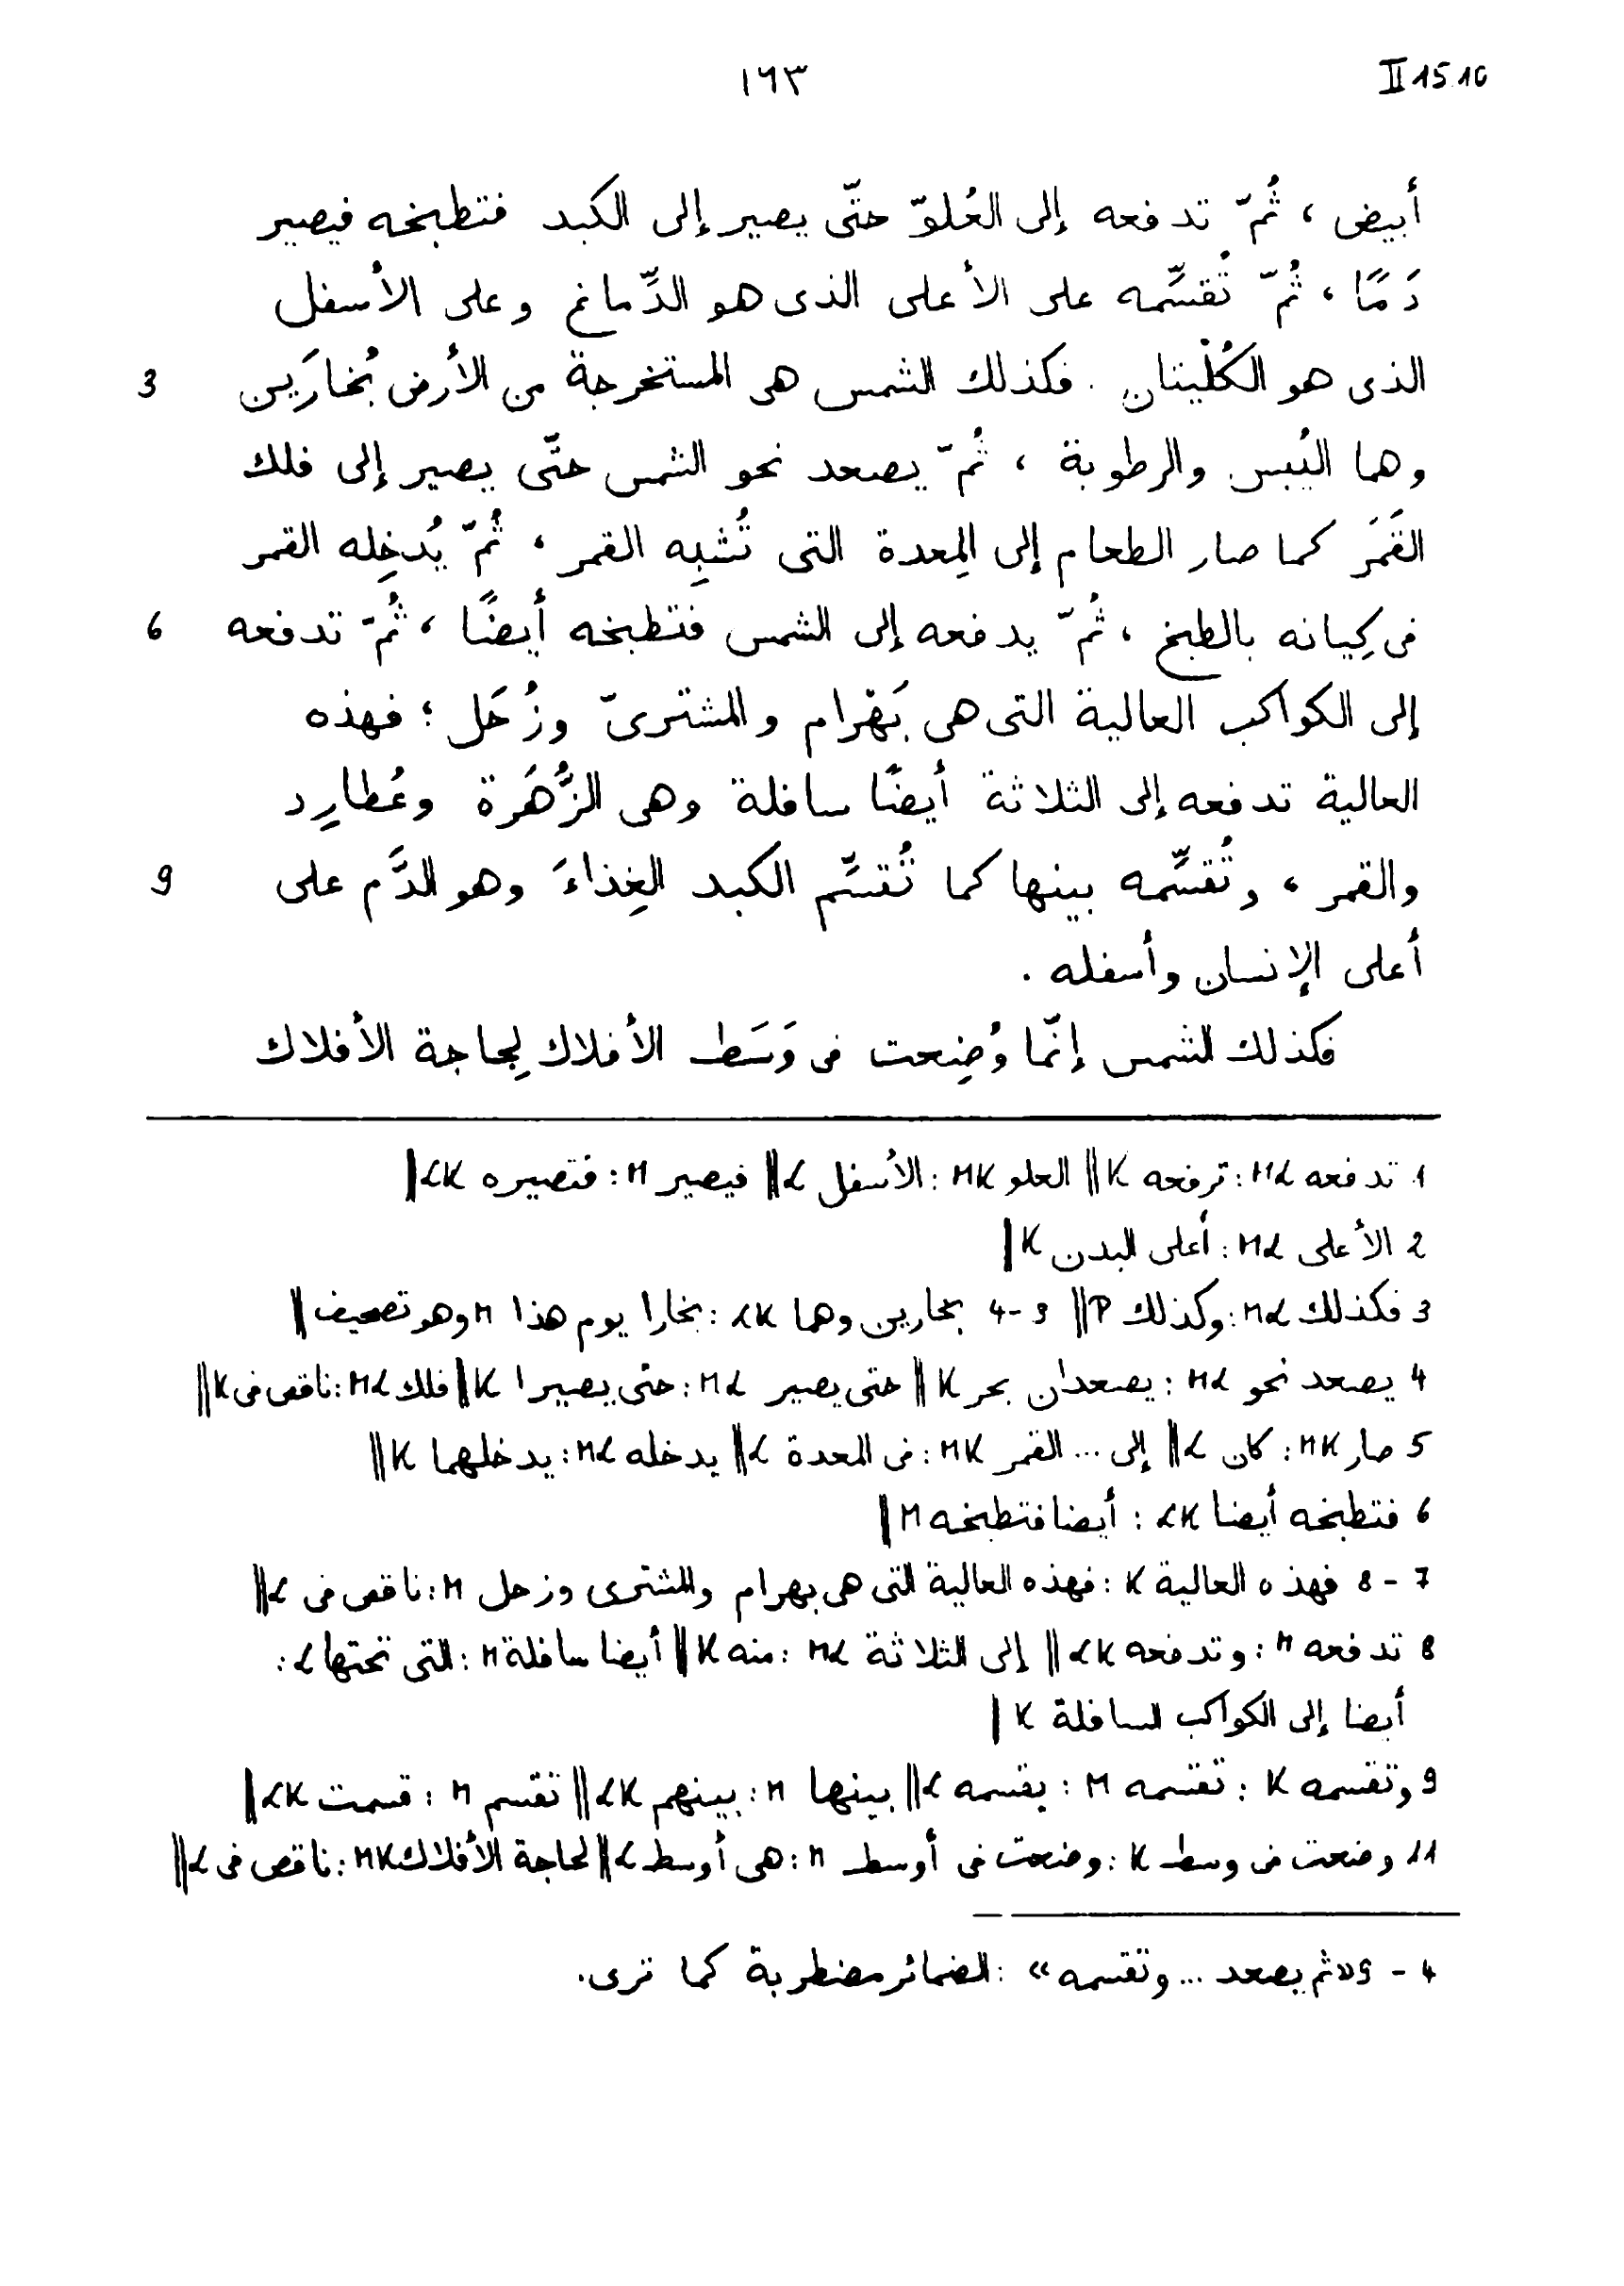 ١٦٣
II 15.10
أبيض ، ثُمّ تدفعه إلى العُلوّ حتّى يصير إلى الكبد فتطبخه فيصير
دَمًا ، ثُمّ تُقسِّمه على الأعلى الذى هو الدِّماغ وعلى الأسفل
الذى هو الكُلْيتان . فكذلك الشمس هى المستخرجة من الأرض بُخارَين 3
وهما اليُبس والرطوبة ، ثُمّ يصعد نحو الشمس حتّى يصير إلى فلك
القَمَر كما صار الطعام إلى المِعدة التى تُشبِه القمر ، ثُمّ يُدخِله القمر
فى كِيانه بالطبخ ، ثُمّ يدفعه إلى الشمس فتطبخه أيضًا ، ثُمّ تدفعه 6
إلى الكواكب العالية التى هى بَهْرام والمشترىّ وزُحَل ؛ فهذه
العالية تدفعه إلى الثلاثة أيضًا سافلة وهى الزُّهَرة وعُطارِد
والقمر ، وتُقسِّمه بينها كما تُقسِّم الكبد الغِذاءَ وهو الدَّم على 9
أعلى الإنسان وأسفله .
فكذلك الشمس إنّما وُضِعت فى وَسَط الأفلاك لِحاجة الأفلاك
1 تدفعه ML : ترفعه K || العلو MK : الأسفل L || فيصير M : فتصيره LK |
2 الأعلى ML : أعلى البدن K |
3 فكذلك ML : وكذلك P || 3-4 بخارين وهما LK : بخارا يوم هذا M وهو تصحيف ||
4 يصعد نحو ML : يصعدان بحر K || حتى يصير ML : حتى يصيرا K || فلك ML : ناقص فى K ||
5 صار MK : كان L || إلى ... القمر MK : فى المعدة L || يدخله ML : يدخلهما K ||
6 فتطبخه أيضا LK : أيضا فتطبخه M |
7 - 8 فهذه العالية K : فهذه العالية التى هى بهرام والمشترى وزحل M : ناقص فى L ||
8 تدفعه M : وتدفعه LK || إلى الثلاثة ML : منه K || أيضا سافلة M : التى تحتها L :
أيضا إلى الكواكب السافلة K |
9 وتقسمه K : تقسمه M : يقسمه L || بينها M : بينهم LK || تقسم M : قسمت LK ||
11 وضعت فى وسط K : وضعت فى أوسط M : هى أوسط L || لحاجة الأفلاك MK : ناقص فى L ||
4 - 9 «ثم يصعد ... وتقسمه» : الضمائر مضطربة كما ترى.